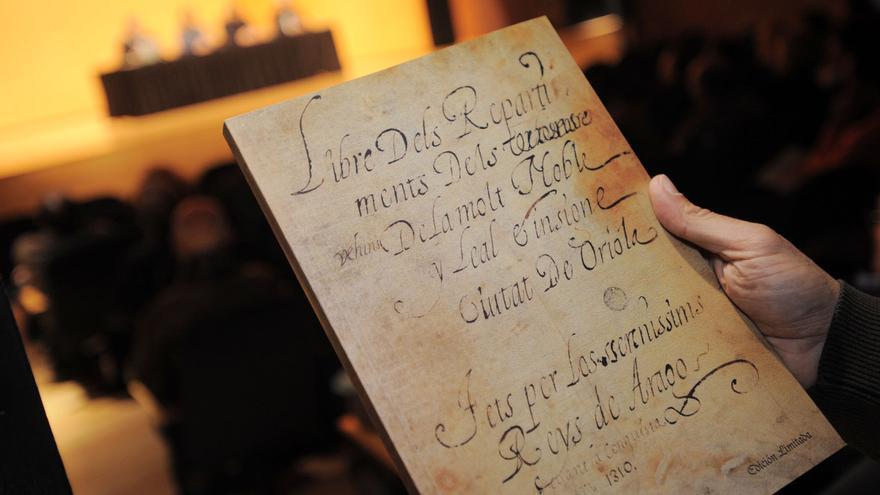 Libre Dels Reparti
ments Dels terres
vehins Delamolt Noble
y Leal e insione
Ciutat De Oriola
Fets per Los serenissims
Reys de Arago
1310.
Edición Limitada